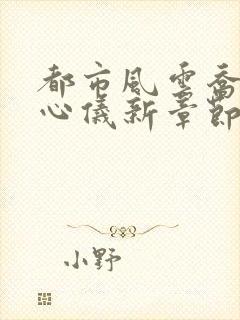 都市風雲喬
心儀新章節
小野